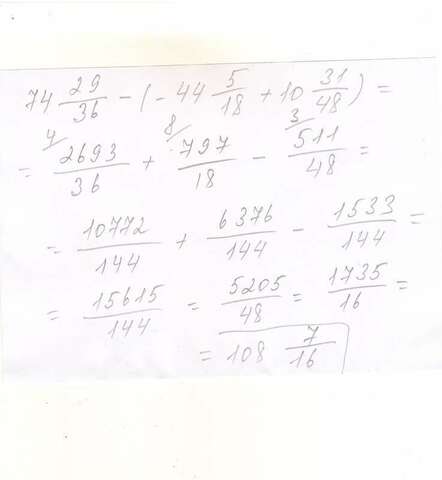 74 29/36 - (- 44 5/18 + 10 31/48) =
= 4/ 2693/36 + 8/ 797/18 - 3/ 511/48 =
= 10772/144 + 6376/144 - 1533/144 =
= 15615/144 = 5205/48 = 1735/16 =
= 108 7/16